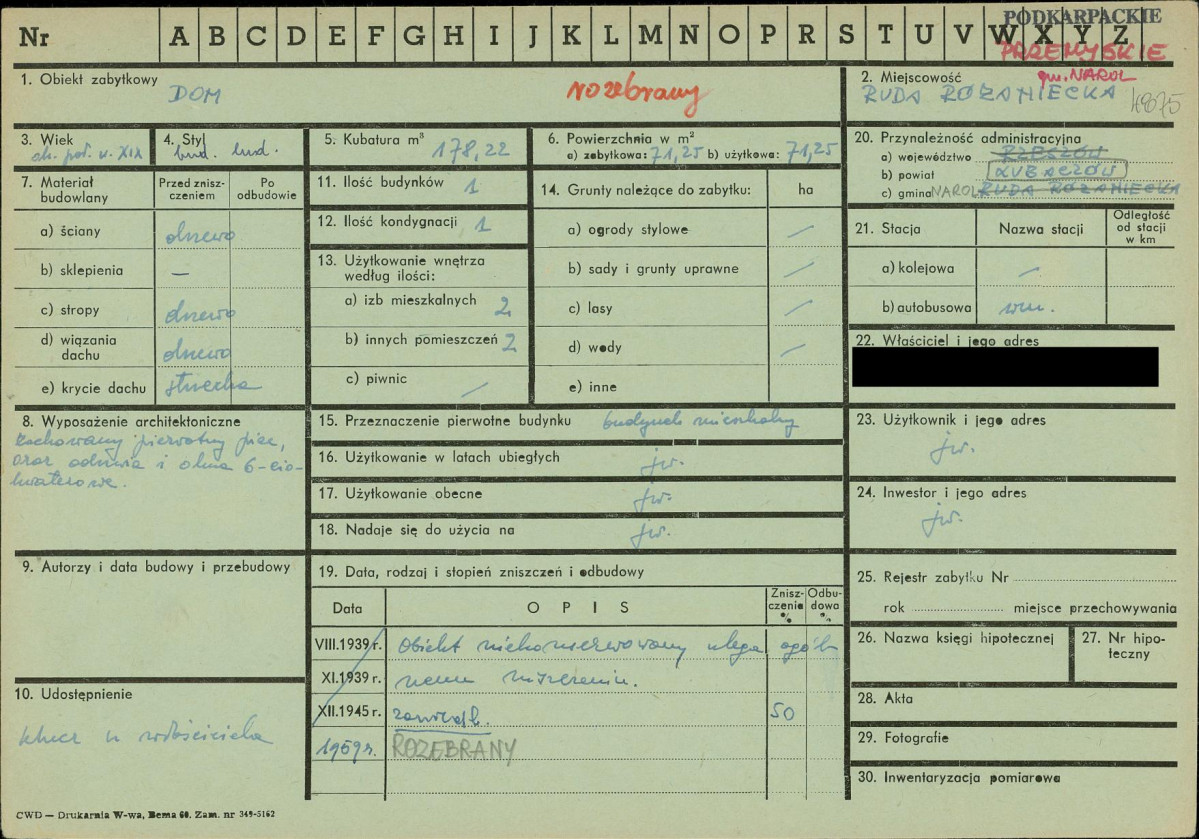 PODKARPACKIE
Nr A B C D E F G H I J K L M N O P R S T U V W X Y Z
PRZEMYSKIE
1. Obiekt zabytkowy
DOM
rozebrany
2. Miejscowość
gm. NAROL
RUDA RÓŻANIECKA
3. Wiek
ok. poł. w. XIX
4. Styl
bud. lud.
5. Kubatura m³ 178,22
6. Powierzchnia w m²
a) zabytkowa: 71,25 b) użytkowa: 71,25
20. Przynależność administracyjna
a) województwo RZESZÓW
b) powiat LUBACZÓW
c) gmina NAROL RUDA RÓŻANIECKA
7. Materiał budowlany
Przed zniszczeniem
Po odbudowie
a) ściany drewno
b) sklepienia —
c) stropy drewno
d) wiązania dachu drewno
e) krycie dachu strzecha
11. Ilość budynków 1
12. Ilość kondygnacji 1
13. Użytkowanie wnętrza
według ilości:
a) izb mieszkalnych 2
b) innych pomieszczeń 2
c) piwnic /
14. Grunty należące do zabytku: ha
a) ogrody stylowe /
b) sady i grunty uprawne /
c) lasy /
d) wody /
e) inne
21. Stacja
Nazwa stacji
Odległość od stacji w km
a) kolejowa /
b) autobusowa wm.
22. Właściciel i jego adres
8. Wyposażenie architektoniczne
zachowany pierwotny piec,
oraz odrzwia i okna 6-cio-
kwaterowe.
15. Przeznaczenie pierwotne budynku budynek mieszkalny
16. Użytkowanie w latach ubiegłych jw.
17. Użytkowanie obecne jw.
18. Nadaje się do użycia na jw.
23. Użytkownik i jego adres
jw.
24. Inwestor i jego adres
jw.
9. Autorzy i data budowy i przebudowy
19. Data, rodzaj i stopień zniszczeń i odbudowy
Data
OPIS
Zniszczenie %
Odbudowa %
VIII.1939 r. Obiekt niekonserwowany ulega ogól-
XI.1939 r. nemu niszczeniu.
XII.1945 r. 50
1959 r. ROZEBRANY
25. Rejestr zabytku Nr
rok miejsce przechowywania
26. Nazwa księgi hipotecznej
27. Nr hipoteczny
28. Akta
29. Fotografie
30. Inwentaryzacja pomiarowa
10. Udostępnienie
klucz u właściciela
CWD — Drukarnia W-wa, Bema 60. Zam. nr 349-5162